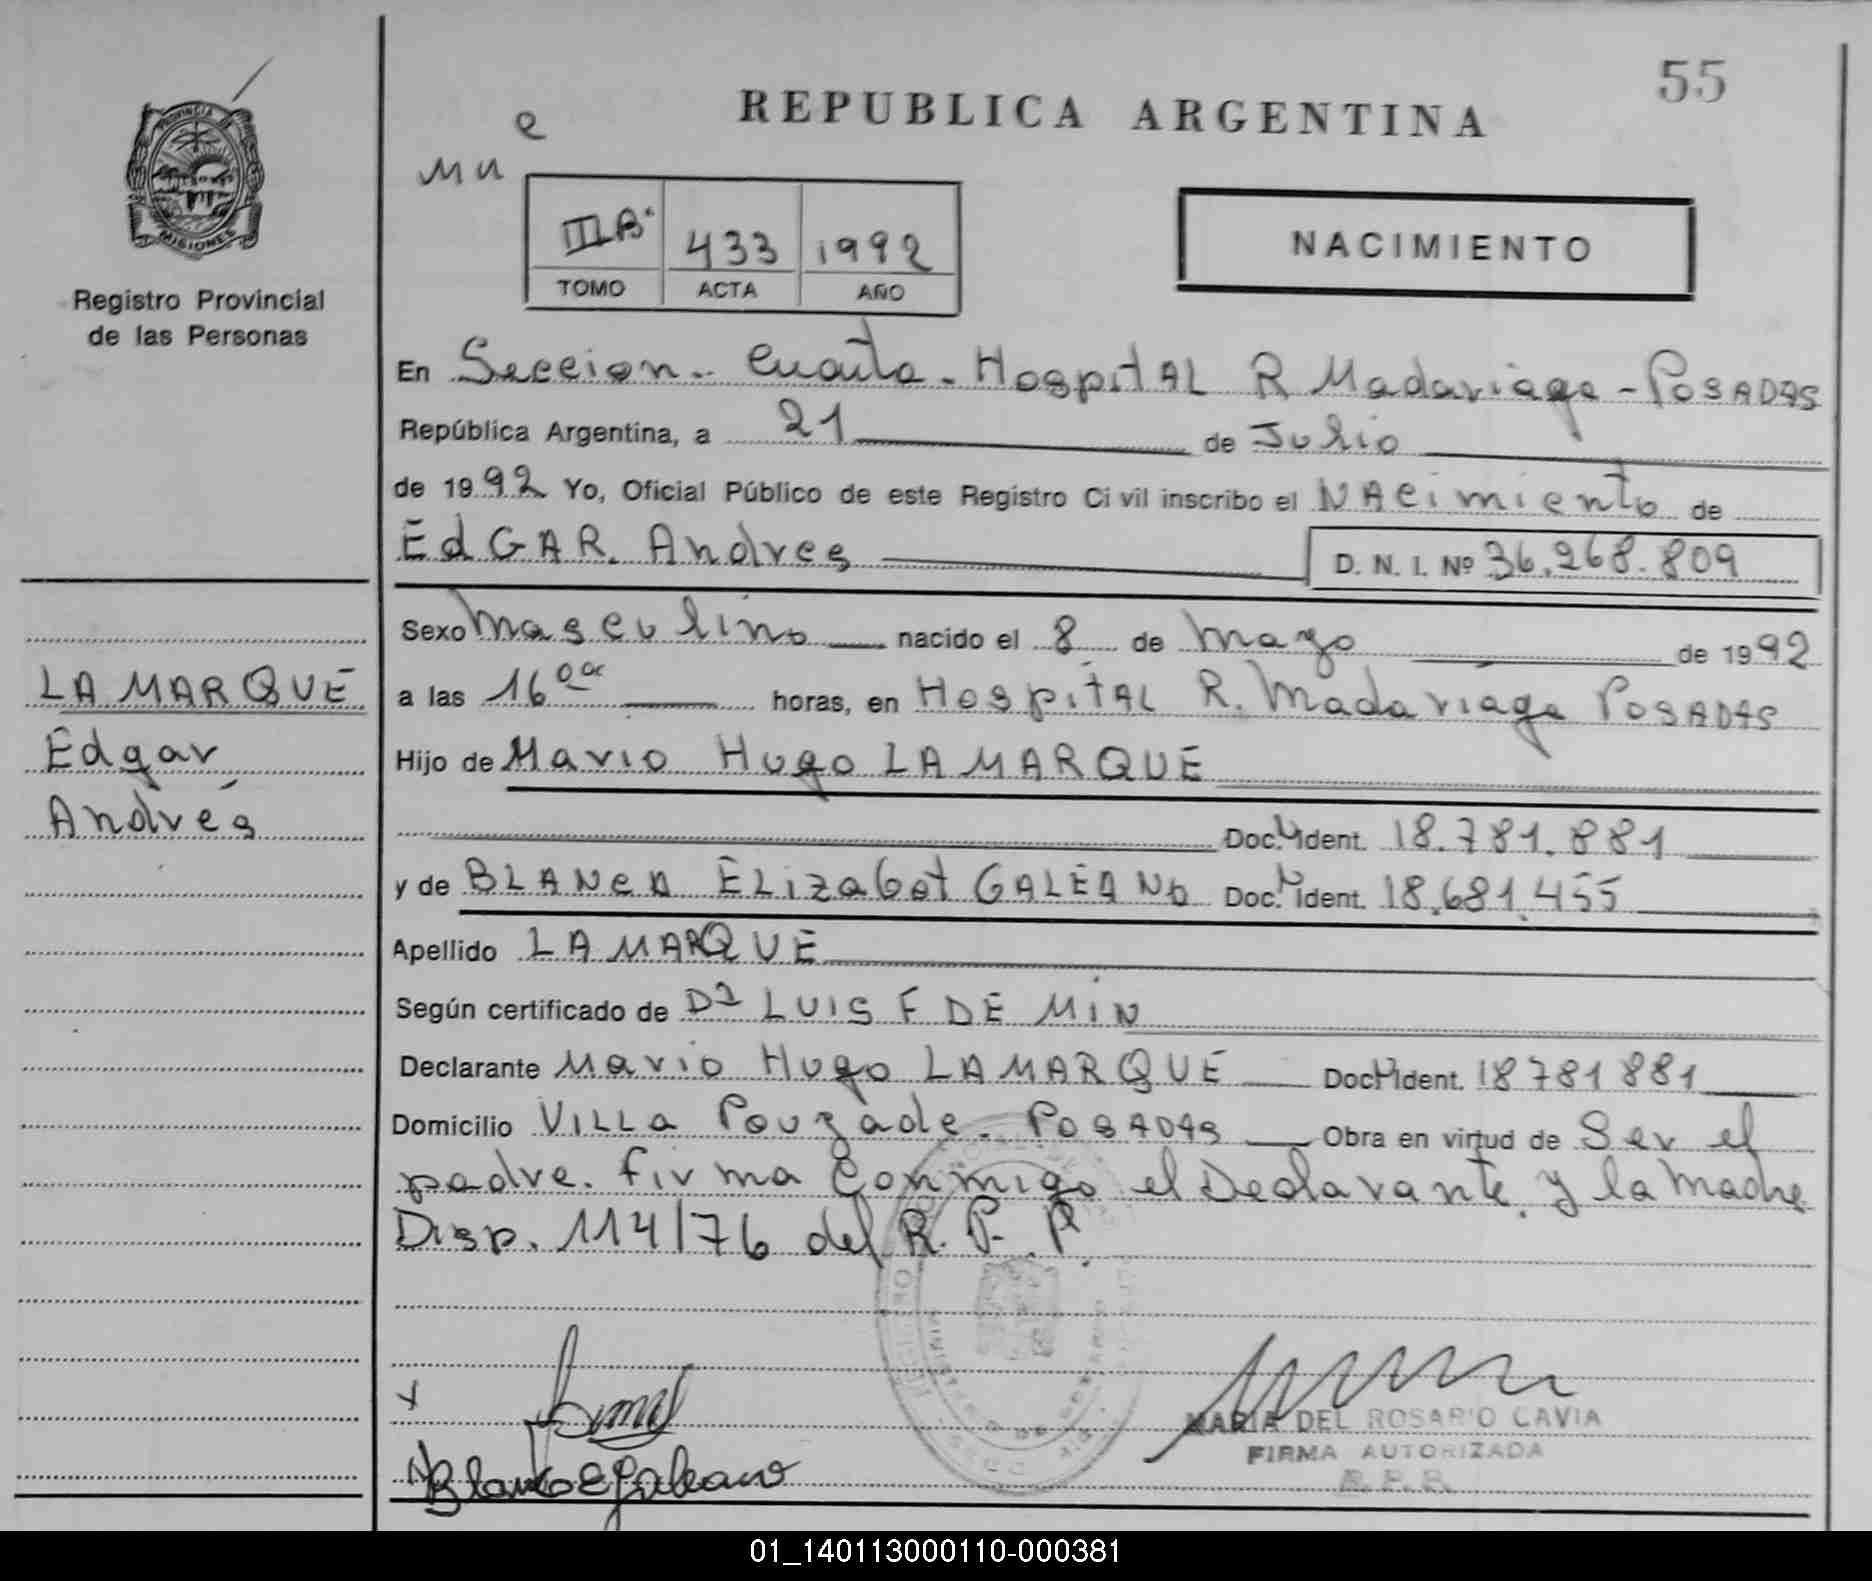 55
REPUBLICA ARGENTINA
e
Mu
PROVINCIA DE
MISIONES
Registro Provincial
de las Personas
III B. 433 1992
TOMO ACTA AÑO
NACIMIENTO
En Seccion - Cuarta - HospitAL R Madariaga - POSADAS
República Argentina, a 21 de Julio
de 1992 Yo, Oficial Público de este Registro Civil inscribo el NAcimiento de
EdGAR. Andres D. N. I. Nº 36.268.809
Sexo Masculino nacido el 8 de Mayo de 1992
a las 16 horas, en HospiTAL R. Madariaga POSADAS
Hijo de Mario Hugo LAMARQUE
Doc. Ident. 18.781.881
y de BLANCA ELizabet GALEANO Doc. Ident. 18.681.455
Apellido LAMARQUE
Según certificado de Dr LUIS F DE MIN
Declarante Mario Hugo LAMARQUE Doc. Ident. 18781881
Domicilio VILLA Pouzade - POSADAS Obra en virtud de Ser el
padre. firma Conmigo el Declarante y la Madre
Disp. 114/76 del R. P. P.
LAMARQUE
Edgar
Andrés
Blanca E Galeano
MARIA DEL ROSARIO CAVIA
FIRMA AUTORIZADA
R. P. P.
01_140113000110-000381